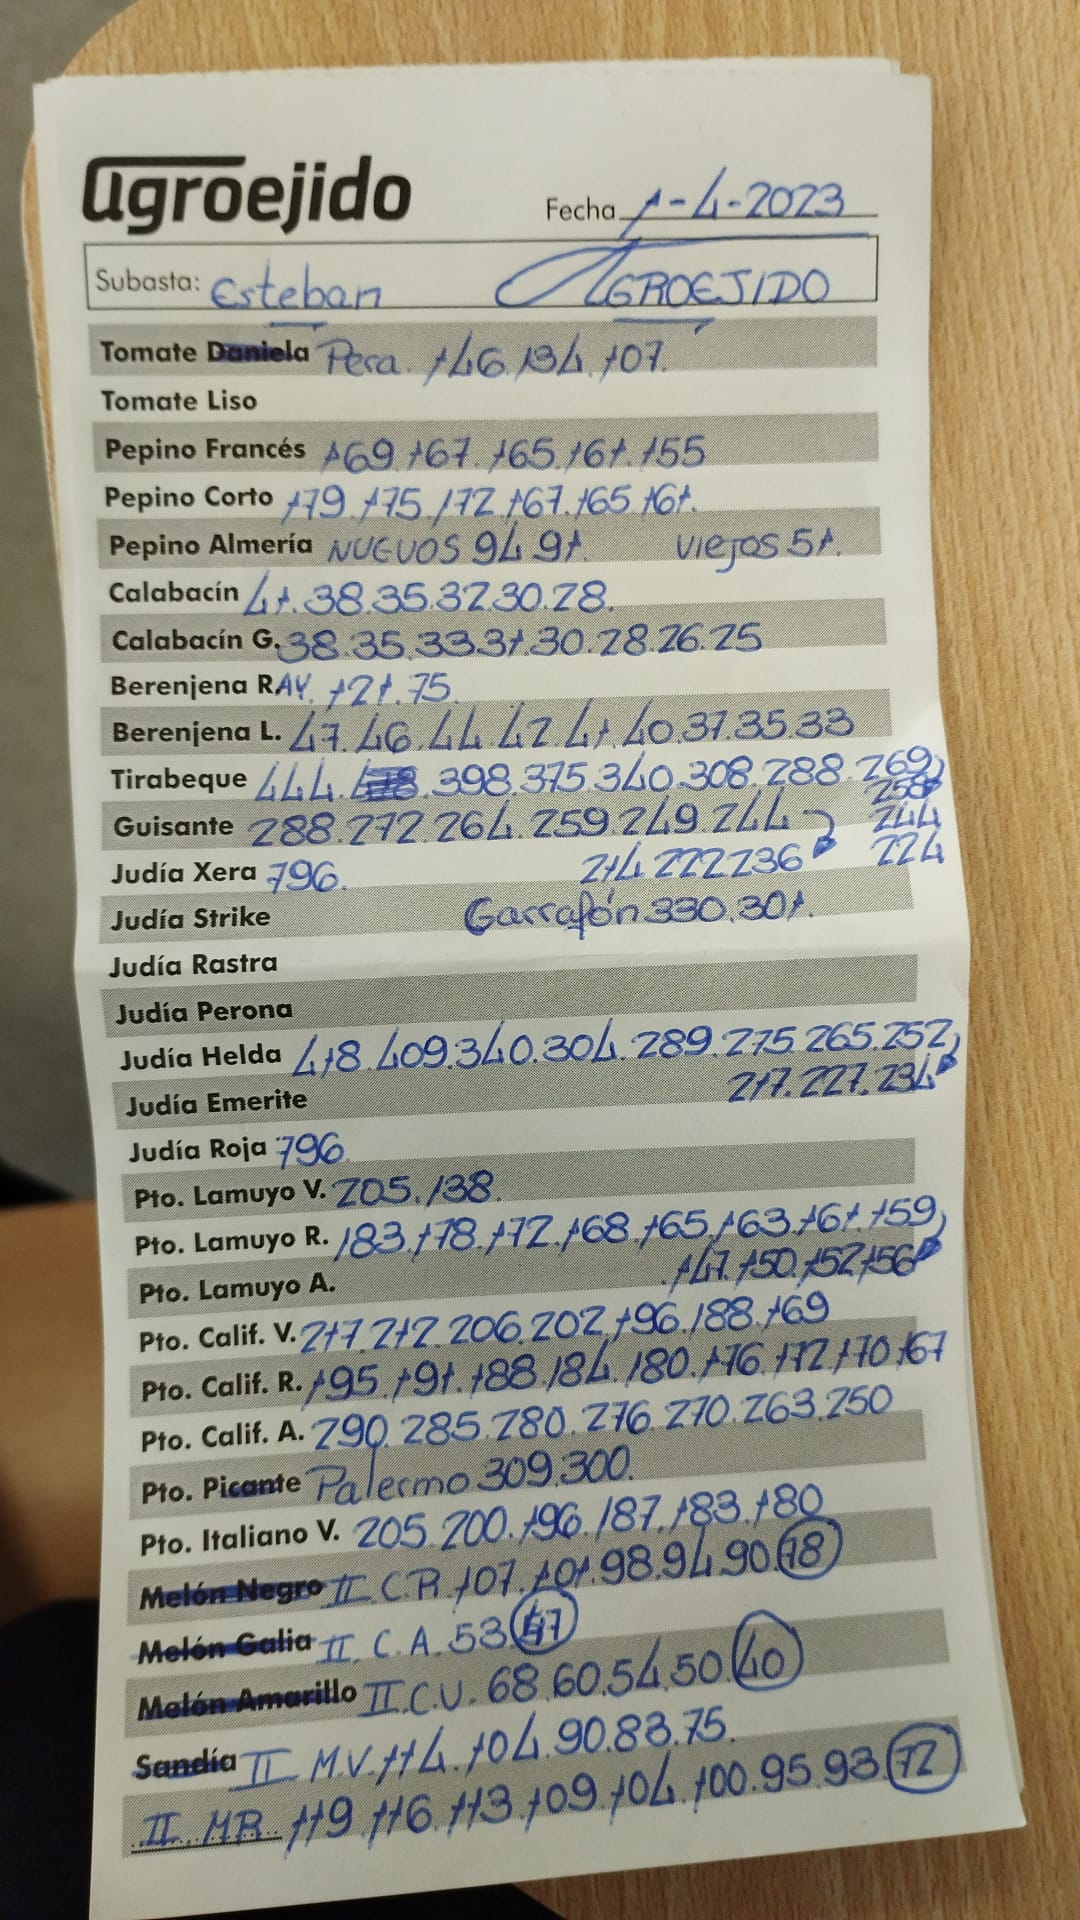 agroejido
Fecha 1-4-2023
Subasta: Esteban AGROEJIDO
Tomate Daniela Pera. 146.134.107.
Tomate Liso
Pepino Francés 169.167.165.161.155
Pepino Corto 179.175.172.167.165.161.
Pepino Almería NUEVOS 94 91. Viejos 51.
Calabacín 41.38.35.32.30.28.
Calabacín G. 38.35.33.31.30.28.26.25
Berenjena RAY. 121.75
Berenjena L. 47.46.44.42.41.40.37.35.33
Tirabeque 444. 398.375.340.308.288.269
258
Guisante 288.272.264.259.249.244 244
Judía Xera 796. 214.222.236 224
Judía Strike Garrafón 330.301.
Judía Rastra
Judía Perona
Judía Helda 418.409.340.304.289.275.265.252
Judía Emerite 217.227.234
Judía Roja 796.
Pto. Lamuyo V. 205.138
Pto. Lamuyo R. 183.178.172.168.165.163.161.159
Pto. Lamuyo A. 147.150.152.156
Pto. Calif. V. 217.212.206.202.196.188.169
Pto. Calif. R. 195.191.188.184.180.176.172.170.167
Pto. Calif. A. 290.285.280.276.270.263.250
Pto. Picante Palermo 309.300.
Pto. Italiano V. 205.200.196.187.183.180
Melón Negro II C.R. 107.101.98.94.90.78
Melón Galia II C.A. 53 47
Melón Amarillo II C.V. 68.60.54.50.40
Sandía II M.V. 114.104.90.83.75.
II MR 119.116.113.109.104.100.95.93.72